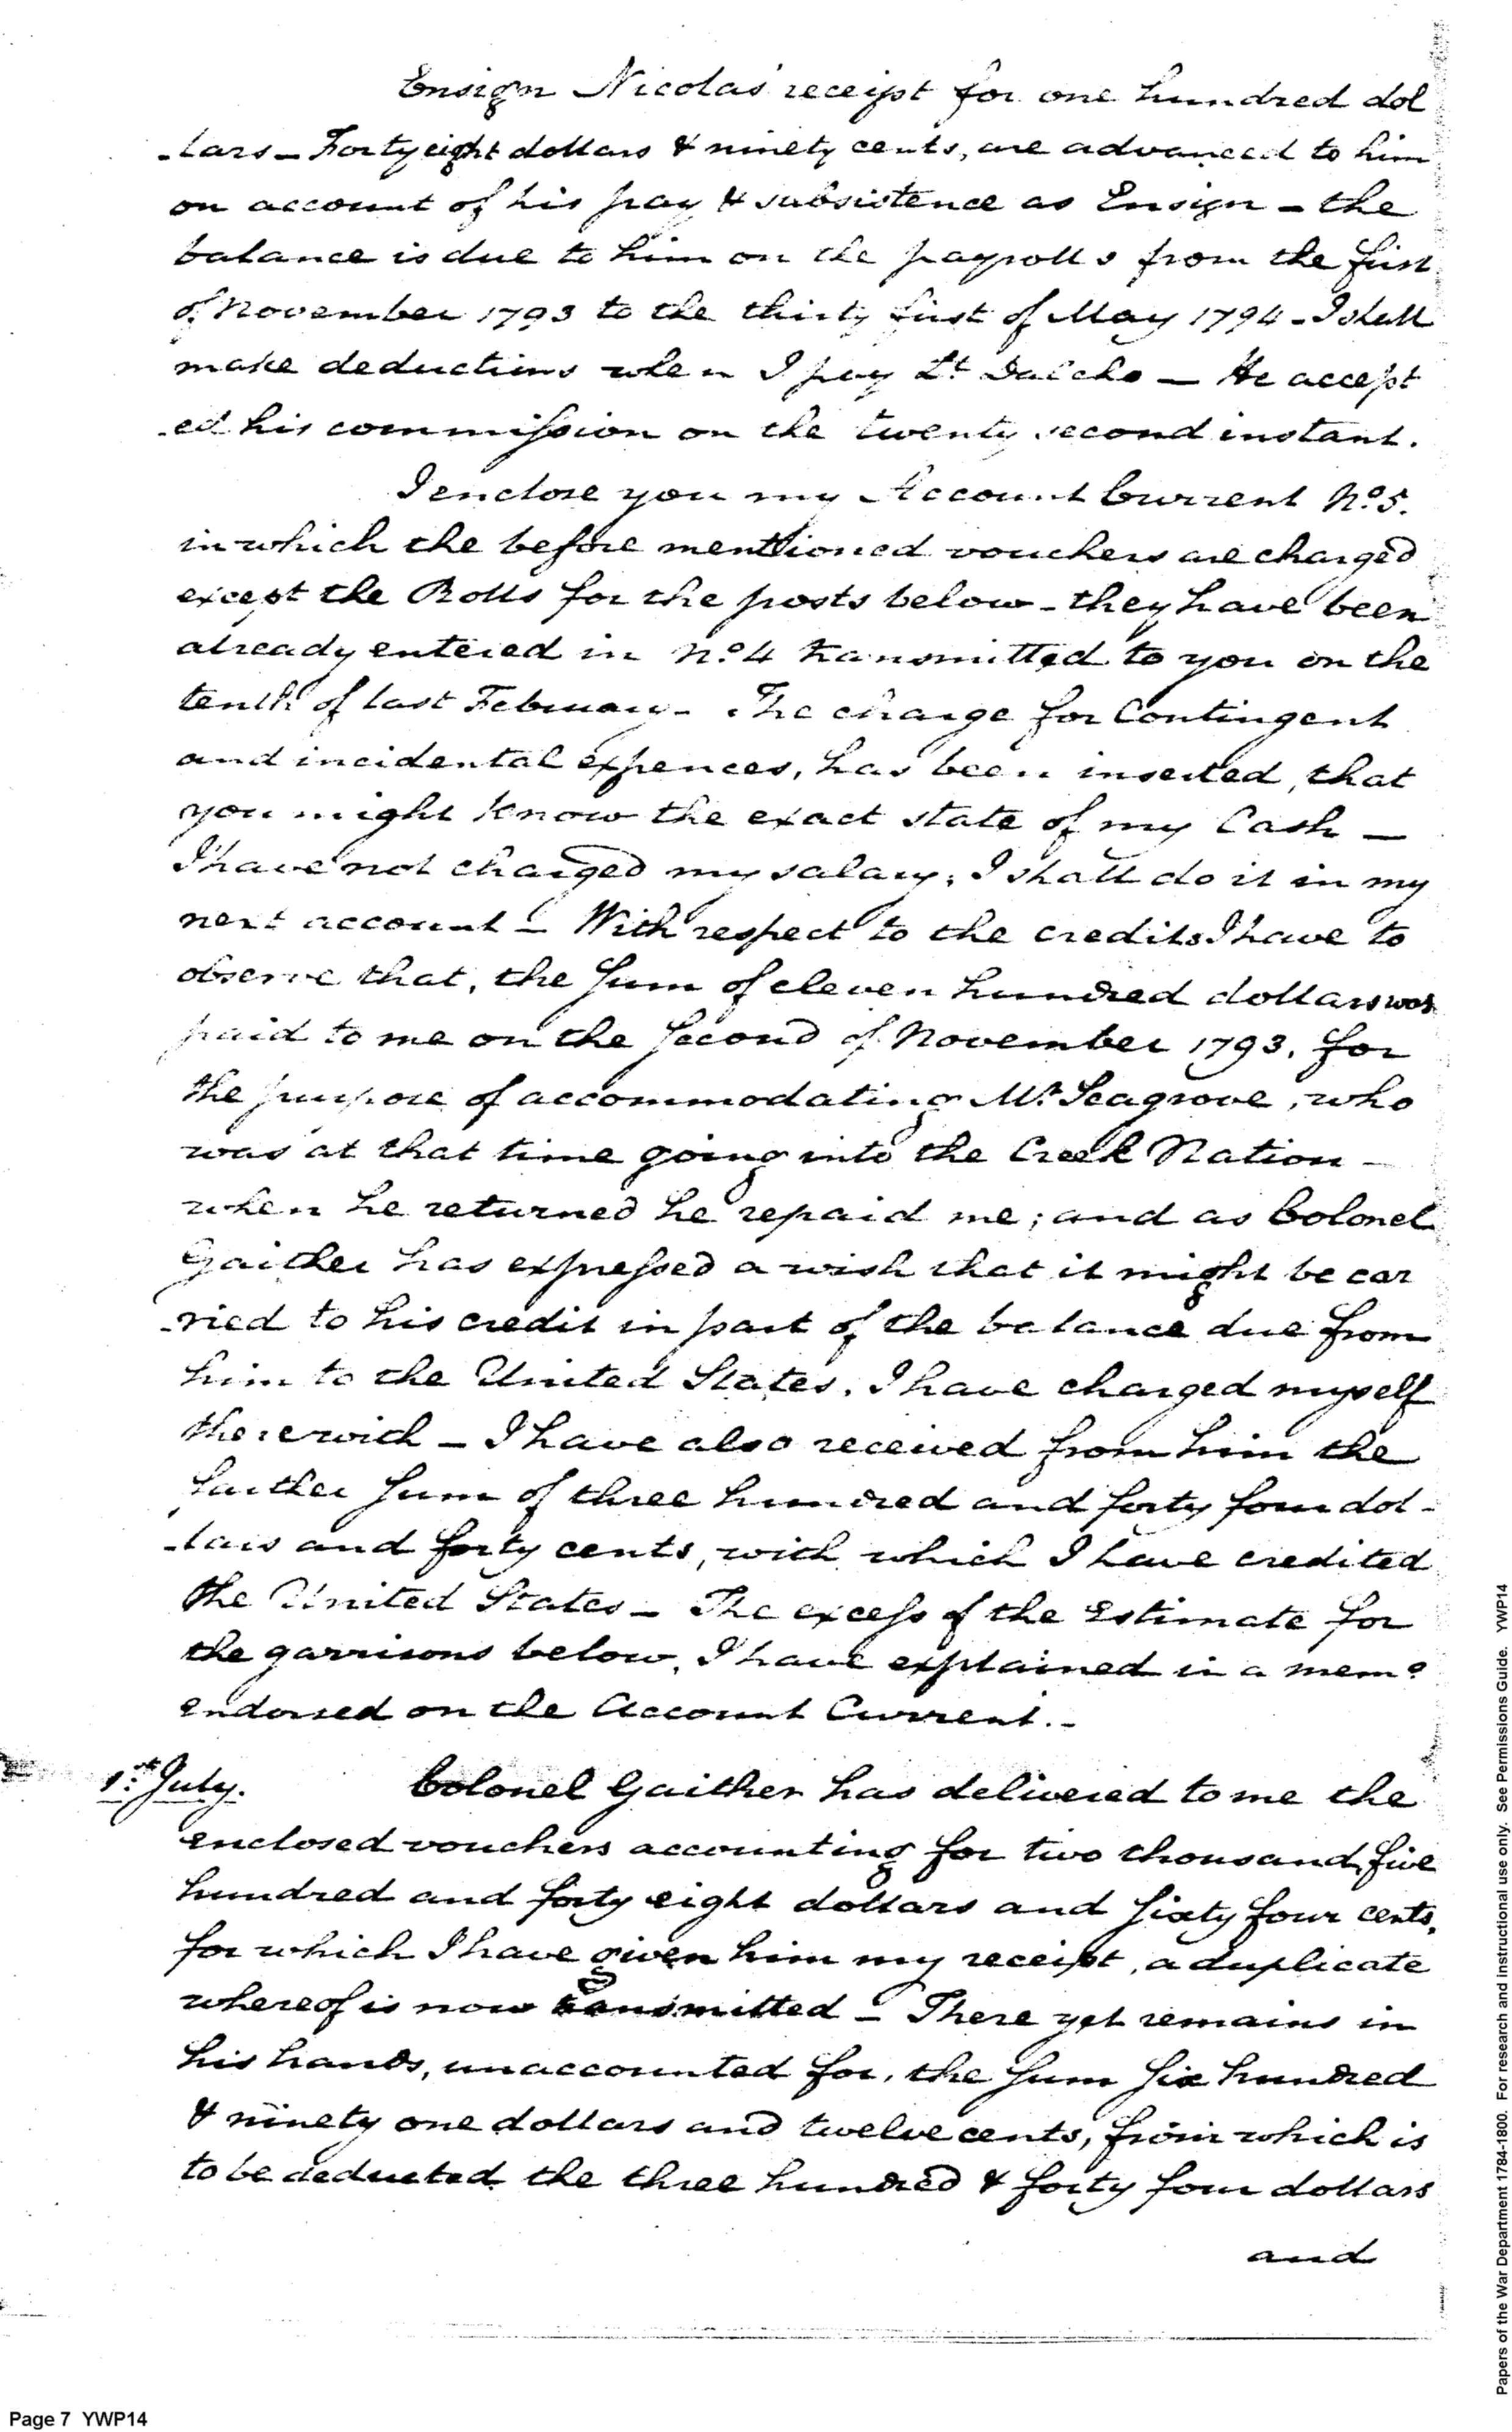 Ensign Nicolas' receipt for one hundred dol
-lars - Forty eight dollars & ninety cents, are advanced to him
on account of his pay & subsistence as Ensign - the
balance is due to him on the payrolls from the first
of November 1793 to the thirty first of May 1794 - I shall
make deductions when I pay Lt Dalcho - He accept
-ed his commission on the twenty second instant.
I enclose you my Account Current No. 5.
in which the before mentioned vouchers are charged
except the Rolls for the posts below - they have been
already entered in No. 4 transmitted to you on the
tenth of last February - The charge for Contingent
and incidental expences, has been inserted, that
you might know the exact state of my Cash -
I have not charged my salary; I shall do it in my
next account - With respect to the credits I have to
observe that, the sum of eleven hundred dollars was
paid to me on the second of November 1793, for
the purpose of accommodating Mr. Seagrove, who
was at that time going into the Creek Nation -
when he returned he repaid me; and as Colonel
Gaither has expressed a wish that it might be car
-ried to his credit in part of the balance due from
him to the United States, I have charged myself
therewith - I have also received from him the
farther sum of three hundred and forty four dol-
-lars and forty cents, with which I have credited
the United States - The excess of the Estimate for
the garrisons below, I have explained in a memo
endorsed on the Account Current. -
1st July. Colonel Gaither has delivered to me the
enclosed vouchers accounting for two thousand, five
hundred and forty eight dollars and sixty four cents,
for which I have given him my receipt, a duplicate
whereof is now transmitted - There yet remains in
his hands, unaccounted for, the sum six hundred
& ninety one dollars and twelve cents, from which is
to be deducted the three hundred & forty four dollars
and
Page 7 YWP14
Papers of the War Department 1784-1800. For research and instructional use only. See Permissions Guide. YWP14